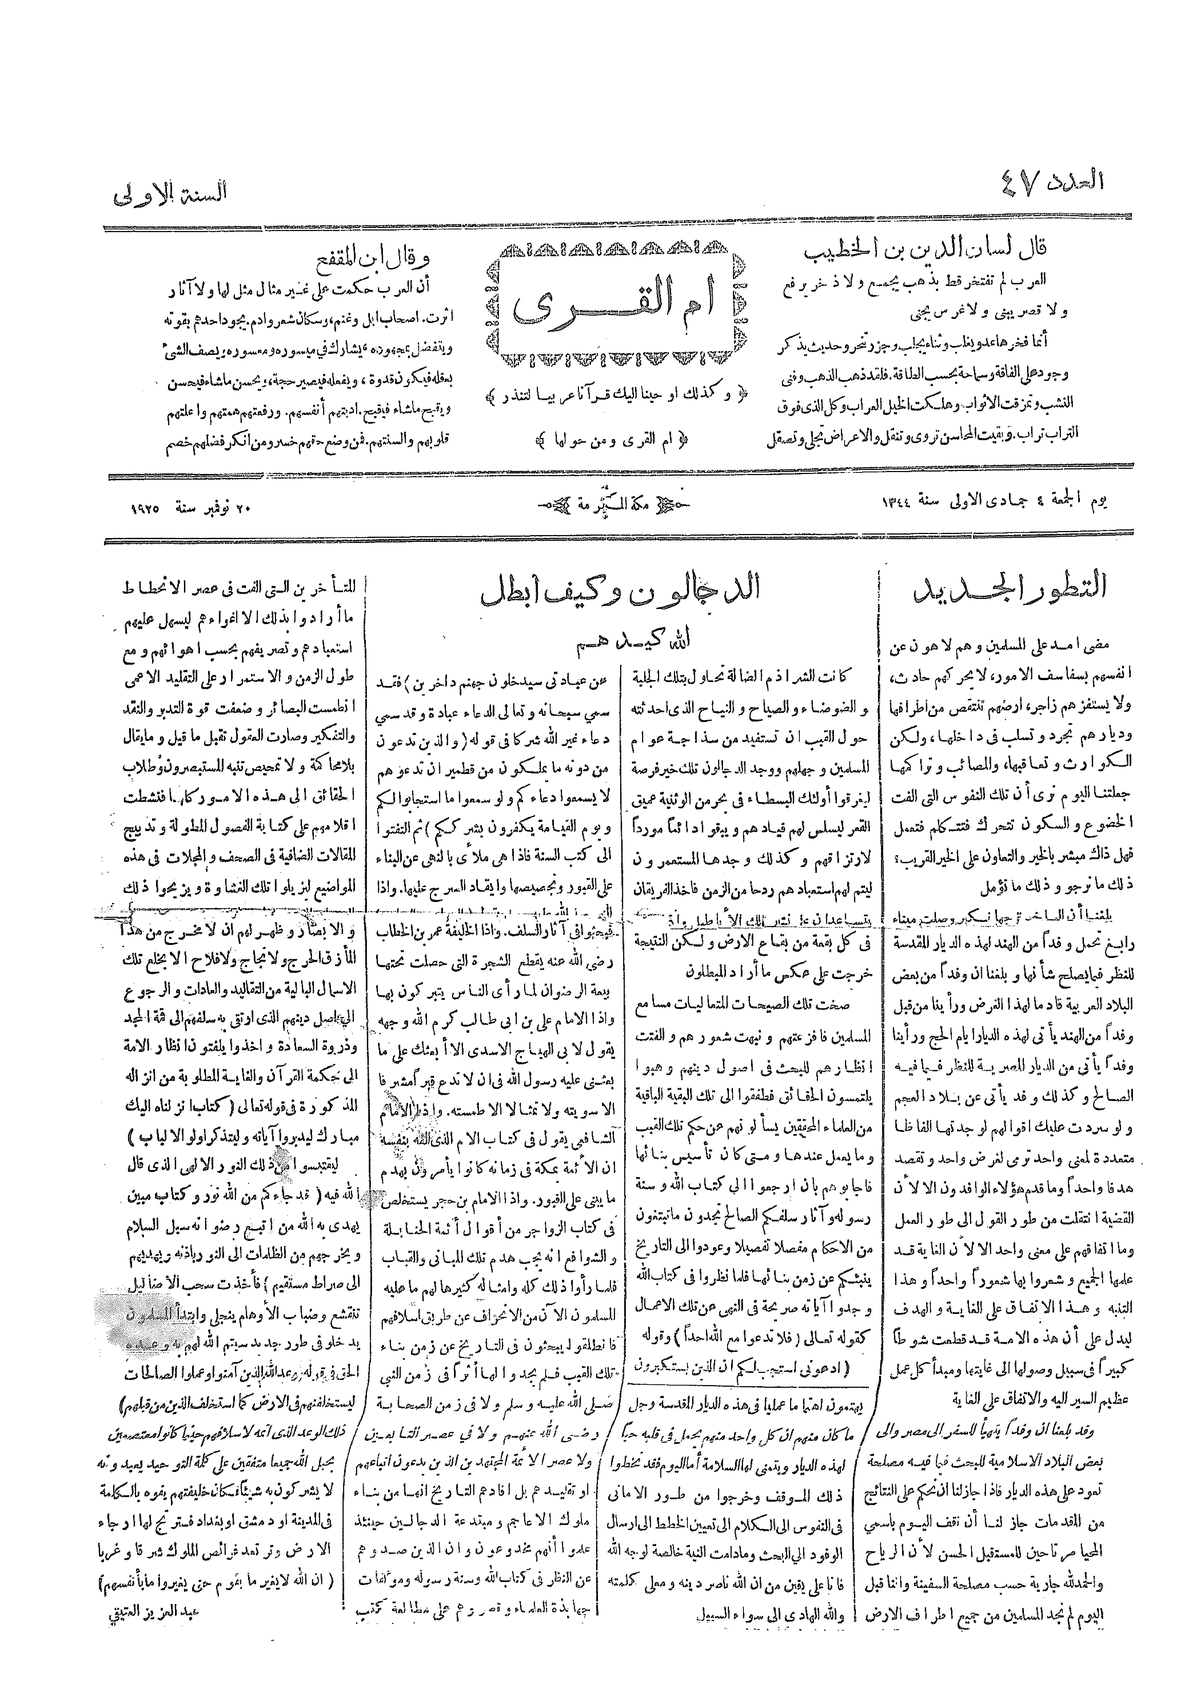 العدد ٤٧
السنة الاولى
قال لسان الدين بن الخطيب
العرب لم تفتخر قط بذهب يجمع ولا ذخر يرفع
ولا قصر يبنى ولا غرس يجنى
أنما فخرها عدو يغلب وثناء يجلب وجزر تنحر وحديث يذكر
وجود على الفاقة وسماحة بحسب الطاقة. فلقد ذهب الذهب وفنى
النشب وتمزقت الاثواب وهلكت الخيل العراب وكل الذى فوق
التراب تراب. وبقيت المحاسن تروى وتنقل والاعراض تجلى وتصقل
ام القرى
﴿ وكذلك اوحينا اليك قرآنا عربيا لتنذر ﴾
﴿ ام القرى ومن حولها ﴾
وقال ابن المقفع
أن العرب حكمت على غير مثال مثل لها ولا آثار
اثرت. اصحاب ابل وغنم، وسكان شعر وادم. يجود احدهم بقوته
ويتفضل بمجهوده، ويشارك في ميسوره ومعسوره ويصف الشئ
بعقله فيكون قدوة، ويفعله فيصير حجة، ويحسن ماشاء فيحسن
ويقبح ماشاء فيقبح. ادبتهم أنفسهم. ورفعتهم همتهم واعلتهم
قلوبهم والسنتهم. فمن وضع حقهم خسر ومن انكر فضلهم خصم
يوم الجمعة ٤ جمادى الاولى سنة ١٣٤٤
مكة المكرمة
٢٠ نوفمبر سنة ١٩٢٥
التطور الجديد
مضى امد على المسلمين وهم لاهون عن
انفسهم بسفاسف الامور، لا يحركهم حادث،
ولا يستفزهم زاجر، ارضهم تنتقص من اطرافها
وديارهم تجرد وتسلب فى داخلها، ولكن
الكوارث وتعاقبها، والمصائب وتراكمها
جعلتنا اليوم نرى أن تلك النفوس التى الفت
الخضوع والسكون تتحرك فتتكلم فتعمل
فهل ذاك مبشر بالخير والتعاون على الخير القريب؟
ذلك ما نرجو وذلك ما نؤمل
بلغنا أن الباخرة وصلت ميناء
رابغ تحمل وفداً من الهند لهذه الديار المقدسة
للنظر فيما يصلح شأنها وبلغنا ان وفداً من بعض
البلاد العربية قادما لهذا الغرض ورأينا من قبل
وفداً من الهند يأتى لهذه الديار ايام الحج ورأينا
وفداً يأتى من الديار المصرية للنظر فيما فيه
الصالح وكذلك وفد يأتى عن بلاد العجم
ولو سردت عليك اقوالهم لوجدتها الفاظا
متعددة لمعنى واحد ترمى لغرض واحد وتقصد
هدفا واحداً وما قدم هؤلاء الوافدون الا لأن
القضية انتقلت من طور القول الى طور العمل
وما اتفاقهم على معنى واحد الا لأن الغاية قد
علمها الجميع وشعروا بها شعوراً واحداً وهذا
التنبه وهذا الاتفاق على الغاية والهدف
ليدل على أن هذه الامة قد قطعت شوطاً
كبيراً فى سبيل وصولها الى غايتها ومبدأ كل عمل
عظيم السير اليه والاتفاق على الغاية
وقد بلغنا ان وفداً يتهيأ للسفر الى مصر والى
بعض البلاد الاسلامية للبحث فيما فيه مصلحة
تعود على هذه الديار فاذا جاز لنا أن نحكم على النتائج
من المقدمات جاز لنا أن نقف اليوم باسمى
المحيا مرتاحين للمستقبل الحسن لأن الرياح
والحمد لله جارية حسب مصلحة السفينة واننا قبل
اليوم لم نجد المسلمين من جميع اطراف الارض
يهتمون اهتماما عمليا فى هذه الديار المقدسة وجل
ما كان منهم ان كل واحد منهم يحمل فى قلبه حباً
لهذه الديار ويتمنى لها السلامة أما اليوم فقد تخطوا
ذلك الموقف وخرجوا من طور الامانى
فى النفوس الى الكلام الى تعيين الخطط الى ارسال
الوفود الى البحث ومادامت النية خالصة لوجه الله
فانا على يقين من ان الله ناصر دينه ومعلى كلمته
والله الهادى الى سواء السبيل
الدجالون وكيف ابطل
الله كيدهم
كانت الشراذم الضالة تحاول بتلك الجلبة
والضوضاء والصياح والنياح الذى احدثته
حول القبب ان تستفيد من سذاجة عوام
المسلمين وجهلهم ووجد الدجالون تلك خير فرصة
ليغرقوا أولئك البسطاء فى بحر من الوثنية عميق
القعر ليسلس لهم قيادهم ويبقوا دائماً مورداً
لارتزاقهم وكذلك وجدها المستعمرون
ليتم لهم استعبادهم ردحا من الزمن فاخذ الفريقان
يتساعدان على نشر تلك الأباطيل
فى كل بقعة من بقاع الارض ولكن النتيجة
خرجت على عكس ما أراد المبطلون
صخت تلك الصيحات المتعاليات مسامع
المسلمين فافزعتهم ونبهت شعورهم والفتت
انظارهم للبحث فى اصول دينهم وهبوا
يلتمسون الحقائق فطفقوا الى تلك البقية الباقية
من العلماء المحققين يسألونهم عن حكم تلك القبب
وما يعمل عندها ومتى كان تأسيس بنائها
فاجابوهم بان ارجعوا الى كتاب الله وسنة
رسوله وآثار سلفكم الصالح تجدون ما تبتغون
من الاحكام مفصلا تفصيلا وعودوا الى التاريخ
ينبئكم عن زمن بنائها فلما نظروا فى كتاب الله
وجدوا آياته صريحة فى النهى عن تلك الاعمال
كقوله تعالى ( فلا تدعوا مع الله احداً ) وقوله
( ادعونى استجب لكم ان الذين يستكبرون
عن عبادتى سيدخلون جهنم داخرين ) فقد
سمى سبحانه وتعالى الدعاء عبادة وقد سمى
دعاء غير الله شركا فى قوله ( والذين تدعون
من دونه ما يملكون من قطمير ان تدعوهم
لا يسمعوا دعاءكم ولو سمعوا ما استجابوا لكم
ويوم القيامة يكفرون بشرككم ) ثم التفتوا
الى كتب السنة فاذا هى ملأى بالنهى عن البناء
على القبور وتجصيصها وايقاد السرج عليها. واذا
فبحثوا فى آثار السلف. واذا الخليفة عمر بن الخطاب
رضى الله عنه يقطع الشجرة التى حصلت تحتها
بيعة الرضوان لما رأى الناس يتبركون بها
واذا الامام على بن ابى طالب كرم الله وجهه
يقول لابى الهياج الاسدى الا أبعثك على ما
بعثنى عليه رسول الله فى ان لا تدع قبراً مشرفا
الا سويته ولا تمثالا الا طمسته. واذا الامام
الشافعى يقول فى كتاب الام الذى الفه بنفسه
ان الأئمة بمكة فى زمانه كانوا يأمرون بهدم
ما يبنى على القبور. واذا الامام بن حجر يستخلص
فى كتاب الزواجر من أقوال أئمة الحنابلة
والشوافع انه يجب هدم تلك المبانى والقباب
فلما رأوا ذلك كله وامثاله كثيرا لهم ما عليه
المسلمون الآن من الانحراف عن طريق اسلافهم
فانطلقوا يبحثون فى التاريخ عن زمن بناء
تلك القبب فلم يجدوا لها أثراً فى زمن النبي
صلى الله عليه وسلم ولا فى زمن الصحابة
رضى الله عنهم ولا في عصر التابعين
ولا عصر الأئمة المجتهدين الذين يدعون اتباعهم
او تقليدهم بل افادهم التاريخ انها من بناء
ملوك الاعاجم ومبتدعة الدجالين حينئذ
علموا أنهم مخدوعون وان الذين صدوهم
عن النظر فى كتاب الله وسنة رسوله ومؤلفات
جهابذة العلماء وقصروهم على مطالعة كتب
المتأخرين التى الفت فى عصر الانحطاط
ما أرادوا بذلك الا اغواءهم ليسهل عليهم
استعبادهم وتصريفهم بحسب اهوائهم ومع
طول الزمن والاستمرار على التقليد الاعمى
انطمست البصائر وضعفت قوة التدبر والنقد
والتفكير وصارت العقول تقبل ما قيل وما يقال
بلا محاكمة ولا تمحيص تنبه المستبصرون وطلاب
الحقائق الى هذه الامور كلها فنشطت
اقلامهم على كتابة الفصول المطولة وتدبيج
المقالات الضافية فى الصحف والمجلات فى هذه
المواضيع ليزيلوا تلك الغشاوة ويزيحوا ذلك
والابصار وظهر لهم ان لا مخرج من هذا
المأزق الحرج ولا نجاح ولا فلاح الا بخلع تلك
الاسمال البالية من التقاليد والعادات والرجوع
الى اصل دينهم الذى ارتقى به سلفهم الى قمة المجد
وذروة السعادة واخذوا يلفتون انظار الامة
الى حكمة القرآن والغاية المطلوبة من انزاله
المذكورة فى قوله تعالى ( كتاب انزلناه اليك
مبارك ليدبروا آياته وليتذكر اولو الالباب )
ليقتبسوا من ذلك النور الالهى الذى قال
الله فيه ( قد جاءكم من الله نور وكتاب مبين
يهدى به الله من اتبع رضوانه سبل السلام
ويخرجهم من الظلمات الى النور باذنه ويهديهم
الى صراط مستقيم ) فأخذت سحب الأضاليل
تنقشع وضباب الأوهام ينجلى وابتدأ المسلمون
يدخلو فى طور جديد سيتم الله لهم به وعده
الحق فى قوله ( وعد الله الذين آمنوا وعملوا الصالحات
ليستخلفنهم فى الارض كما استخلف الذين من قبلهم )
ذلك الوعد الذى اتمه لاسلافهم حينما كانوا معتصمين
بحبل الله جميعا متفقين على كلمة التوحيد يعبدونه
لا يشركون به شيئاً فكان خليفتهم يفوه بالكلمة
فى المدينة او دمشق او بغداد فترتج لها ارجاء
الارض وترتعد فرائص الملوك شرقا وغربا
( ان الله لا يغير ما بقوم حتى يغيروا ما بأنفسهم )
عبد العزيز العتيقي